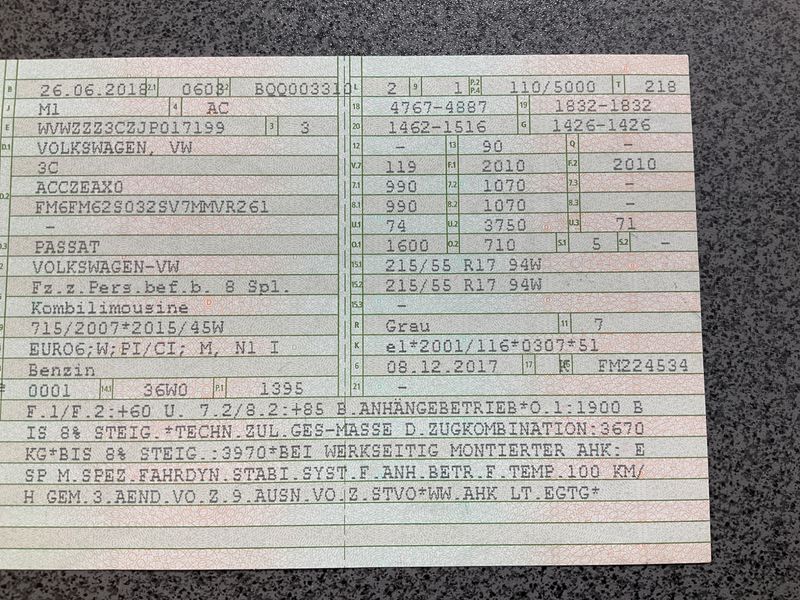 B 26.06.2018 2.1 0603 2.2 BQQ003310 L 2 9 1 P.2 P.4 110/5000 T 218
J M1 4 AC 18 4767-4887 19 1832-1832
E WVWZZZ3CZJP017199 3 3 20 1462-1516 G 1426-1426
D.1 VOLKSWAGEN, VW 12 - 13 90 Q -
3C V.7 119 F.1 2010 F.2 2010
D.2 ACCZEAX0 7.1 990 7.2 1070 7.3 -
FM6FM62S032SV7MMVR261 8.1 990 8.2 1070 8.3 -
- U.1 74 U.2 3750 U.3 71
D.3 PASSAT O.1 1600 O.2 710 S.1 5 S.2 -
2 VOLKSWAGEN-VW 15.1 215/55 R17 94W
5 Fz.z.Pers.bef.b. 8 Spl. 15.2 215/55 R17 94W
Kombilimousine 15.3 -
715/2007*2015/45W R Grau 11 7
EURO6;W;PI/CI; M, N1 I K e1*2001/116*0307*51
Benzin 6 08.12.2017 17 K 16 FM224534
0001 14.1 36W0 P.1 1395 21 -
F.1/F.2:+60 U. 7.2/8.2:+85 B.ANHÄNGEBETRIEB*O.1:1900 B
IS 8% STEIG.*TECHN.ZUL.GES-MASSE D.ZUGKOMBINATION:3670
KG*BIS 8% STEIG.:3970*BEI WERKSEITIG MONTIERTER AHK: E
SP M.SPEZ.FAHRDYN.STABI.SYST.F.ANH.BETR.F.TEMP.100 KM/
H GEM.3.AEND.VO.Z.9.AUSN.VO.Z.STVO*WW.AHK LT.EGTG*